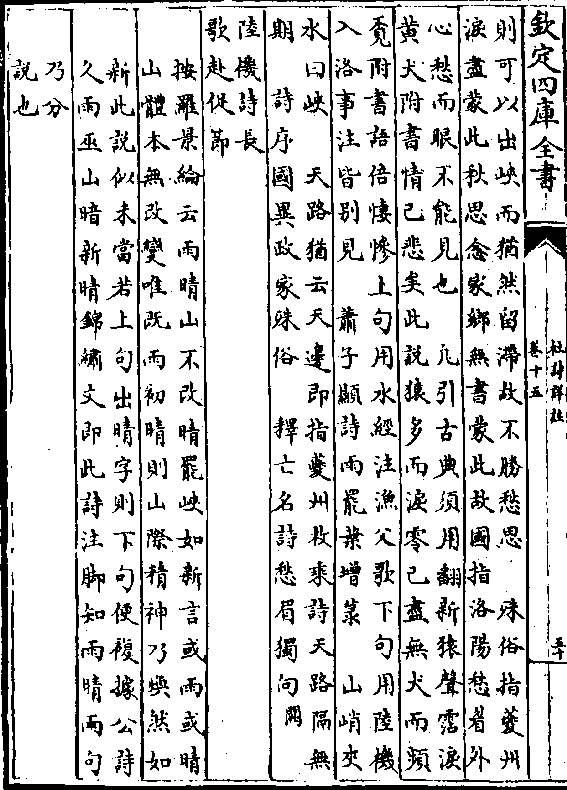 欽定四庫全書
杜詩詳註
卷十五
五十
則可以出峽而猶然留滯故不勝愁思　殊俗指夔州
淚盡蒙此秋思念家鄉無書蒙此故國指洛陽愁眉外
心愁而眼不能見也　凡引古典須用翻新猿聲霑淚
黄犬附書情已悲矣此説猿多而淚零已盡無犬而頻
覓附書語倍悽慘上句用水經注漁父歌下句用陸機
入洛事注皆別見　蕭子顯詩雨罷葉增菉　山峭夾
水曰峽　天路猶云天邊即指夔州枚乘詩天路隔無
期　詩序國異政家殊俗　釋亡名詩愁眉獨向闕
陸機詩長
歌赴促節
按羅景綸云雨晴山不改晴罷峽如新言或雨或晴
山體本無改變唯既雨初晴則山際精神乃煥然如
新此説似未當若上句出晴字則下句便複據公詩
久雨巫山暗新晴錦繡文即此詩注脚知雨晴兩句
乃分
説也